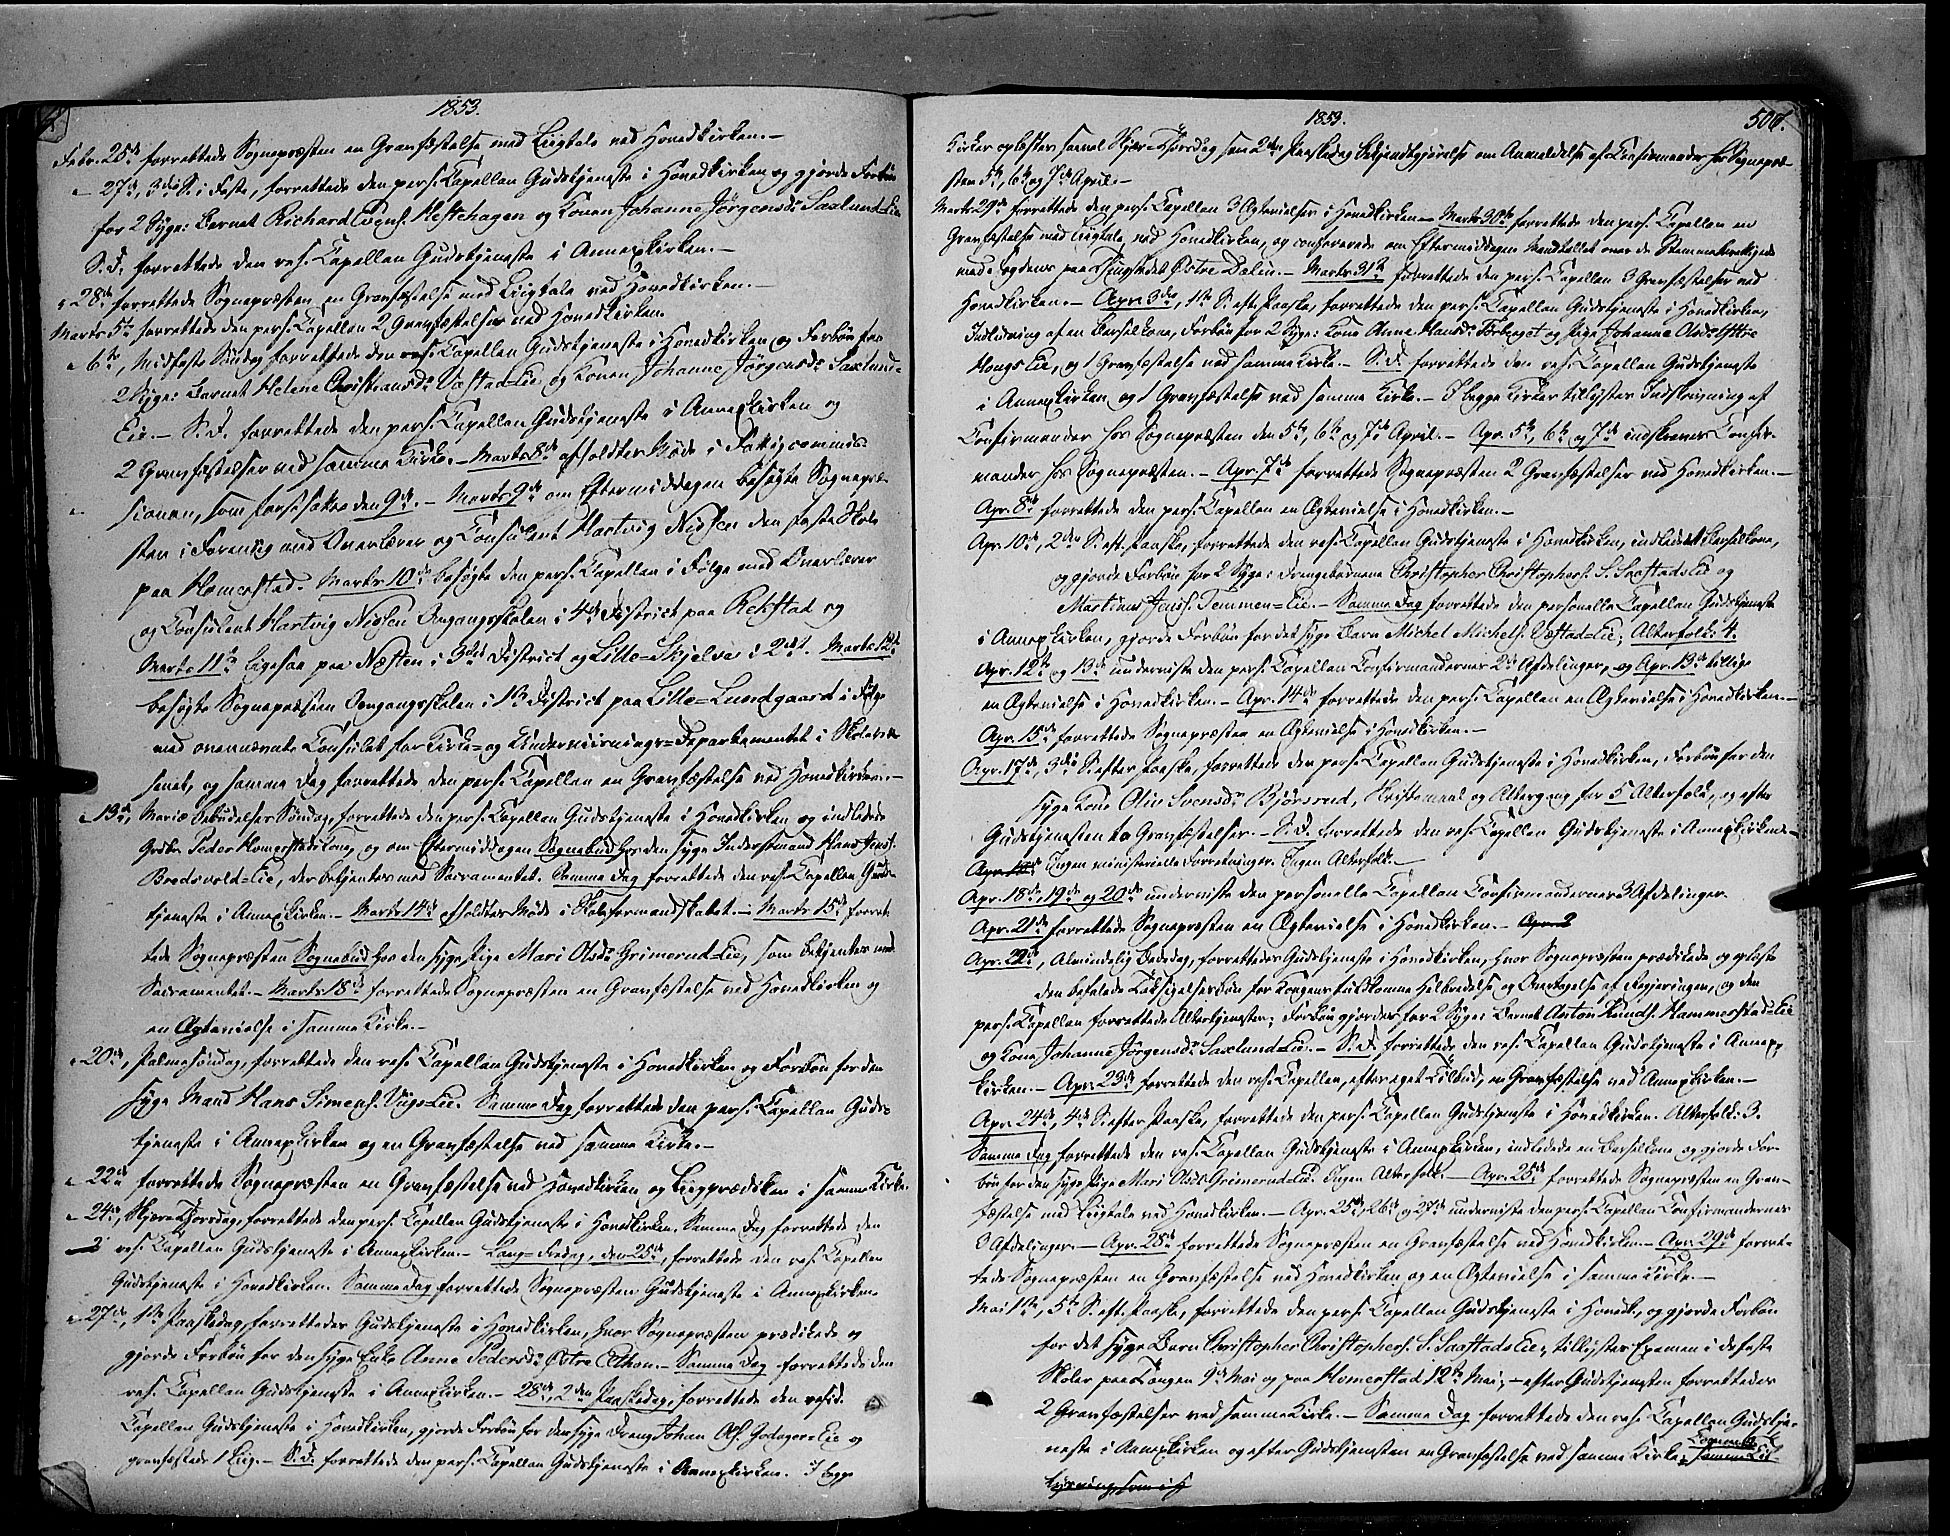 1853.
Febr. 25de forrettede Sognepræsten en Gravfæstelse med Liigtale ved Hovedkirken.–
" 27de, 3die S. i Faste, forrettede den pers. Capellan Gudstjeneste i Hovedkirken og gjorde Forbøn
for 2 Syge: Barnet Richard Evens. Hestehagen og Konen Johanne Jørgensdr Saxlund-Eie
S.D. forrettede den res. Capellan Gudstjeneste i Annexkirken.–
" 28de forrettede Sognepræsten en Gravfæstelse med Liigtale ved Hovedkirken.–
Marts 5te forrettede den pers. Capellan 2 Gravfæstelser ved Hovedkirken.
" 6te, Midfaste Søndag forrettede den res. Capellan Gudstjeneste i Hovedkirken og Forbøn for
2 Syge: Barnet Helene Christiansdr Sæstad-Eie og Konen Johanne Jørgensdr Saxlund-
Eie.– S.D. forrettede den pers. Capellan Gudstjeneste i Annexkirken og
2 Gravfæstelser ved samme Kirke.– Marts 8de afholdtes Møde i Fattigcommis-
sionen, som fortsattes den 9de.– Marts 9de om Eftermiddagen besøgte Sognepræ-
sten i Forening med Overlærer og Consulent Hartvig Nissen den faste Skole
paa Homerstad. Marts 10de besøgte den pers. Capellan i Følge med Overlærer
og Consulent Hartvig Nissen Omgangsskolen i 4de District paa Rekstad og
Marts 11te ligesaa paa Næsten i 3die District og Lille-Skjelve i 2det. Marts 12te
besøgte Sognepræsten Omgangsskolen i 1ste District paa Lille-Lundgaard i Følge
med ovennævnte Consulent for Kirke- og Underviisnings-Departementet i Skolevæ-
senet, og samme Dag forrettede den pers. Capellan en Gravfæstelse ved Hovedkirken.–
" 13de, Mariæ Bebudelses Søndag, forrettede den pers. Capellan Gudstjeneste i Hovedkirken og indledede
Grdbr. Peder Homerstads Kone, og om Eftermiddagen Sognebud hos den syge Inderstmand Hans Jens.
Bredsvold-Eie, der betjentes med Sacramentet. Samme Dag forrettede den res. Capellan Guds-
tjeneste i Annexkirken.– Marts 14de afholdtes Møde i Skoleformandskabet.– Marts 15de forret-
tede Sognepræsten Sognebud hos den syge Pige Mari Olsdr Grimerud-Eie, som betjentes med
Sacramentet.– Marts 18de forrettede Sognepræsten en Gravfæstelse ved Hovedkirken og
en Ægtevielse i samme Kirke.–
" 20de, Palmesøndag, forrettede den res. Capellan Gudstjeneste i Hovedkirken og Forbøn for den
syge Mand Hans Simens. Viigs-Eie. Samme Dag forrettede den pers. Capellan Guds-
tjeneste i Annexkirken og en Gravfæstelse ved samme Kirke.–
" 22de forrettede Sognepræsten en Gravfæstelse ved Hovedkirken og Liigprædiken i samme Kirke.
" 24de, Skjær-Torsdag, forrettede den pers. Capellan Gudstjeneste i Hovedkirken. Samme Dag forrettede den
res. Capellan Gudstjeneste i Annexkirken.– Lang-Fredag, den 25de, forrettede den res. Capellan
Gudstjeneste i Hovedkirken. Samme Dag forrettede Sognepræsten Gudstjeneste i Annexkirken.
" 27de, 1ste Paaskedag, forrettedes Gudstjeneste i Hovedkirken, hvor Sognepræsten prædikede og
gjorde Forbøn for den syge Enke Anne Pedersdr Østre Alhan.– Samme Dag forrettede den
res. Capellan Gudstjeneste i Annexkirken.– 28de, 2den Paaskedag, forrettede den resid.
Capellan Gudstjeneste i Hovedkirken, gjorde Forbøn for den syge Dreng Johan Ols. Godager-Eie og
gravfæstede 1 Liig.– S.D. forrettede den pers. Capellan Gudstjeneste i Annexkirken. I begge
1853.
500.
Kirker oplæstes saavel Skjær-Torsdag som 2den Paaskedag Bekjendtgjørelse om Anmeldelse af Confirmander hos Sognepræ-
sten 5te, 6te og 7de April.–
Marts 29de forrettede den pers. Capellan 3 Ægtevielser i Hovedkirken.– Marts 30te forrettede den pers. Capellan en
Gravfæstelse med Liigtale ved Hovedkirken, og confererede om Eftermiddagen Mandtallet over de Stemmeberettigede
med Fogdens paa Thingstedet Østre Dælin.– Marts 31te forrettede den pers. Capellan 3 Gravfæstelser ved
Hovedkirken.– Apr. 3die, 1ste S. eft. Paaske, forrettede den pers. Capellan Gudstjeneste i Hovedkirken,
Indledning af en Barselkone, Forbøn for 2 Syge: Kone Anne Hansdr Torberget og Pige Johanne Olsdr Yttre
Hongs-Eie, og 1 Gravfæstelse ved samme Kirke.– S.D. forrettede den res. Capellan Gudstjeneste
i Annexkirken og 1 Gravfæstelse ved samme Kirke.– I begge Kirker tillystes Indskrivning af
Confirmander hos Sognepræsten den 5te, 6te og 7de April.– Apr. 5te, 6te og 7de indskreves Confir-
mander hos Sognepræsten.– Apr. 7de forrettede Sognepræsten 2 Gravfæstelser ved Hovedkirken.–
Apr. 8de forrettede den pers. Capellan en Ægtevielse i Hovedkirken.–
Apr. 10de, 2den S. eft. Paaske, forrettede den res. Capellan Gudstjeneste i Hovedkirken, indledede 1 Barselkone,
og gjorde Forbøn for 2 Syge: Drengebørnene Christopher Christophers. S. Saastads Eie og
Martinus Jens. Temmen-Eie.– Samme Dag forrettede den personelle Capellan Gudstjeneste
i Annexkirken, gjorde Forbøn for det syge Barn Michel Michels. Væstad-Eie; Alterfolk: 4.
Apr. 12te og 13de underviste den pers. Capellan Confirmandernes 2de Afdelinger, og Apr. 13de tillige
en Ægtevielse i Hovedkirken.– Apr. 14de forrettede den pers. Capellan en Ægtevielse i Hovedkirken.–
Apr. 15de forrettede Sognepræsten en Ægtevielse i Hovedkirken.–
Apr. 17de, 3die S. efter Paaske, forrettede den pers. Capellan Gudstjeneste i Hovedkirken, Forbøn for den
syge Kone Oliv Svensdr Bjørsrud, Skriftemaal og Altergang for 5 Alterfolk, og efter
Gudstjenesten to Gravfæstelser.– S.D. forrettede den res. Capellan Gudstjeneste i Annexkirken.–
Apr. 18de Ingen ministerielle Forretninger. Ingen Alterfolk.–
Apr. 18de, 19de og 20de underviste den personelle Capellan Confirmandernes 3 Afdelinger.
Apr. 21de forrettede Sognepræsten en Ægtevielse i Hovedkirken.– Apr. 2
Apr. 22de, Almindelig Bededag, forrettedes Gudstjeneste i Hovedkirken, hvor Sognepræsten prædikede og oplæste
den befalede Taksigelsesbøn for Kongens fuldkomne Helbredelse og Overtagelse af Regjeringen, og den
pers. Capellan forrettede Altertjenesten; Forbøn gjordes for 2 Syge: Barnet Anton Knuds. Hammerstads Eie
og Kone Johanne Jørgensdr Saxlund-Eie.– S.D. forrettede den res. Capellan Gudstjeneste i Annex-
kirken.– Apr. 23de forrettede den res. Capellan, efter eget Tilbud, en Gravfæstelse ved Annexkirken.–
Apr. 24de, 4de S. efter Paaske, forrettede den pers. Capellan Gudstjeneste i Hovedkirken. Alterfolk: 3.
Samme Dag forrettede den res. Capellan Gudstjeneste i Annexkirken, indledede en Barselkone og gjorde For-
bøn for den syge Pige Mari Olsdr Grimerud-Eie. Ingen Alterfolk.– Apr. 25de forrettede Sognepræsten en Grav-
fæstelse med Liigtale ved Hovedkirken.– Apr. 25de, 26de og 27de underviste den pers. Capellan Confirmandernes
3 Afdelinger.– Apr. 28de forrettede Sognepræsten en Gravfæstelse ved Hovedkirken.– Apr. 29de forret-
tede Sognepræsten en Gravfæstelse ved Hovedkirken og en Ægtevielse i samme Kirke.–
Mai 1ste, 5te S. eft. Paaske, forrettede den pers. Capellan Gudstjeneste i Hovedk., og gjorde Forbøn
for det syge Barn Christopher Christophers. S. Saastads Eie, tillyster Examen i de faste
Skoler paa Tangen 9de Mai og paa Homerstad 12te Mai;– efter Gudstjenesten forrettedes
2 Gravfæstelser ved samme Kirke.– Samme Dag forrettede den res. Capellan Gudstje-
neste i Annexkirken og efter Gudstjenesten en Gravfæstelse ved samme Kirke; samme Til-
lysning som i H